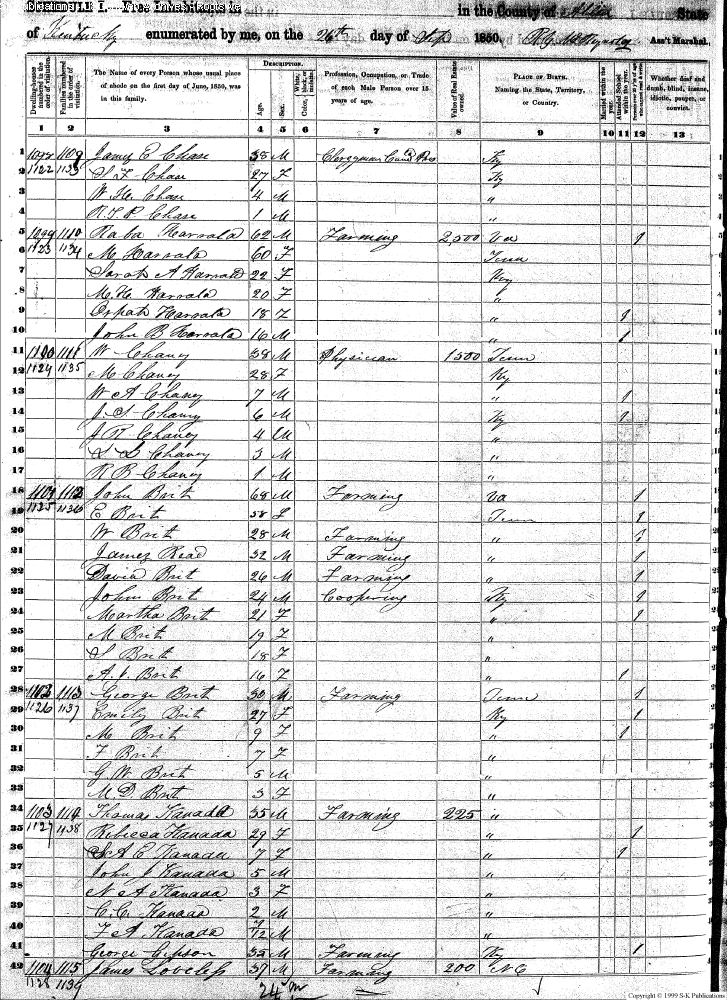 in the County of Allen State
of Kentucky enumerated by me, on the 26th day of Sep 1850. Ass't Marshal.
Dwelling-houses numbered in the order of visitation.
Families numbered in the order of visitation.
The Name of every Person whose usual place of abode on the first day of June, 1850, was in this family.
DESCRIPTION.
Age.
Sex.
Color, White, black, or mulatto.
Profession, Occupation, or Trade of each Male Person over 15 years of age.
Value of Real Estate owned.
PLACE OF BIRTH.
Naming the State, Territory, or Country.
Married within the year.
Attended School within the year.
Whether deaf and dumb, blind, insane, idiotic, pauper, or convict.
1 2 3 4 5 6 7 8 9 10 11 12 13
1 1109 James E Chase 38 M Clergyman Ky
2 1122 1133 S F Chase 27 F Ky
3 W. H. Chase 4 M "
4 R. T. P. Chase 1 M "
5 1099 1110 Harrald 62 M Farming 2,500 Va 1
6 1123 1134 M Harrald 60 F Tenn
7 Sarah A Harrald 22 F Ky
8 M. H. Harrald 20 F "
9 Orpah Harrald 18 F " 1
10 John B Harrald 16 M " 1
11 1100 1111 W Chaney 38 M Physician 1500 Tenn
12 1124 1135 M Chaney 28 F Ky
13 W A Chaney 7 M " 1
14 J. S. Chaney 6 M Ky 1
15 J R Chaney 4 M "
16 S S Chaney 3 M "
17 R B Chaney 1 M "
18 1101 1112 John Brit 68 M Farming Va 1
19 1125 1136 E Brit 58 F Tenn 1
20 W Brit 28 M Farming " 1
21 James Read 32 M Farming " 1
22 David Brit 26 M Farming " 1
23 John Brit 24 M Coopering Ky 1
24 Martha Brit 21 F " 1
25 M Brit 19 F "
26 S Brit 18 F "
27 A. J. Brit 16 F " 1
28 1102 1113 George Brit 30 M Farming Tenn 1
29 1126 1137 Emily Brit 27 F Ky 1
30 M Brit 9 F " 1
31 F Brit 7 F "
32 G W Brit 5 M "
33 M D Brit 3 F "
34 1103 1114 Thomas Kanada 35 M Farming 225 "
35 1127 1138 Rebecca Kanada 29 F " 1
36 S A E Kanada 7 F " 1
37 John J Kanada 5 M "
38 N A Kanada 3 F "
39 C. C. Kanada 2 M "
40 F A Kanada /12 M "
41 George Gipson 35 M Farming Ky 1
42 1104 1115 James Loveless 37 M Farming 200 NC
1128 1139 24 m
Copyright © 1999 S-K Publications